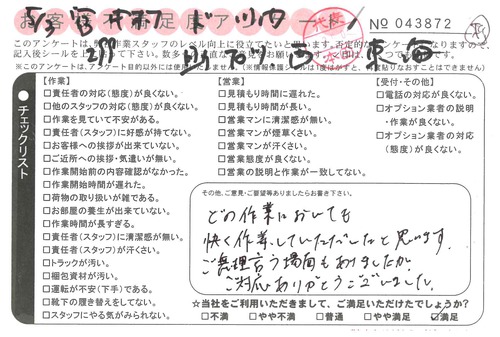 お客様不満足度アンケート
No 043872
このアンケートは、弊社作業スタッフのレベル向上に役立てたいと思います。
※このアンケートは、アンケート目的以外には使用いたしません。
チェックリスト
【作業】
□責任者の対応(態度)が良くない。
□他のスタッフの対応(態度)が良くない。
□作業を見ていて不安がある。
□責任者(スタッフ)に好感が持てない。
□お客様への挨拶が出来ていない。
□ご近所への挨拶・気遣いが無い。
□作業開始前の内容確認がなかった。
□作業開始時間が遅れた。
□荷物の取り扱いが雑である。
□お部屋の養生が出来ていない。
□作業時間が長すぎる。
□責任者(スタッフ)に清潔感が無い。
□責任者(スタッフ)が汗くさい。
□トラックが汚い。
□梱包資材が汚い。
□運転が不安(下手)である。
□靴下の履き替えをしてない。
□スタッフにやる気がみられない。
【営業】
□見積もり時間に遅れた。
□見積もり時間が長い。
□営業マンに清潔感が無い。
□営業マンが煙草くさい。
□営業マンが汗くさい。
□営業態度が良くない。
□営業の説明と作業が一致してない。
【受付・その他】
□電話の対応が良くない。
□オプション業者の説明
・作業が良くない。
□オプション業者の対応
(態度)が良くない。
その他、ご意見・ご要望等ありましたらお書き下さい。
どの作業においても
快く作業していただいたと思います。
ご無理言う場面もありましたが
ご対応ありがとうございました。
☆当社をご利用いただきまして、ご満足いただけたでしょうか?
□不満 □やや不満 □普通 □やや満足 ☑満足